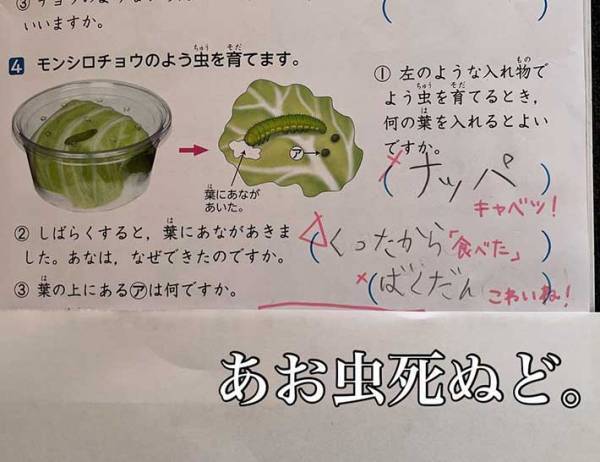 いいますか。
4 モンシロチョウのよう虫を育てます。
① 左のような入れ物で
よう虫を育てるとき,
何の葉を入れるとよい
ですか。
(ナッパ)
キャベツ!
㋐
葉にあなが
あいた。
② しばらくすると,葉にあながあきま
した。あなは,なぜできたのですか。
(くったから「食べた」)
③ 葉の上にある㋐は何ですか。
(ばくだん こわいね!)
あお虫死ぬど。